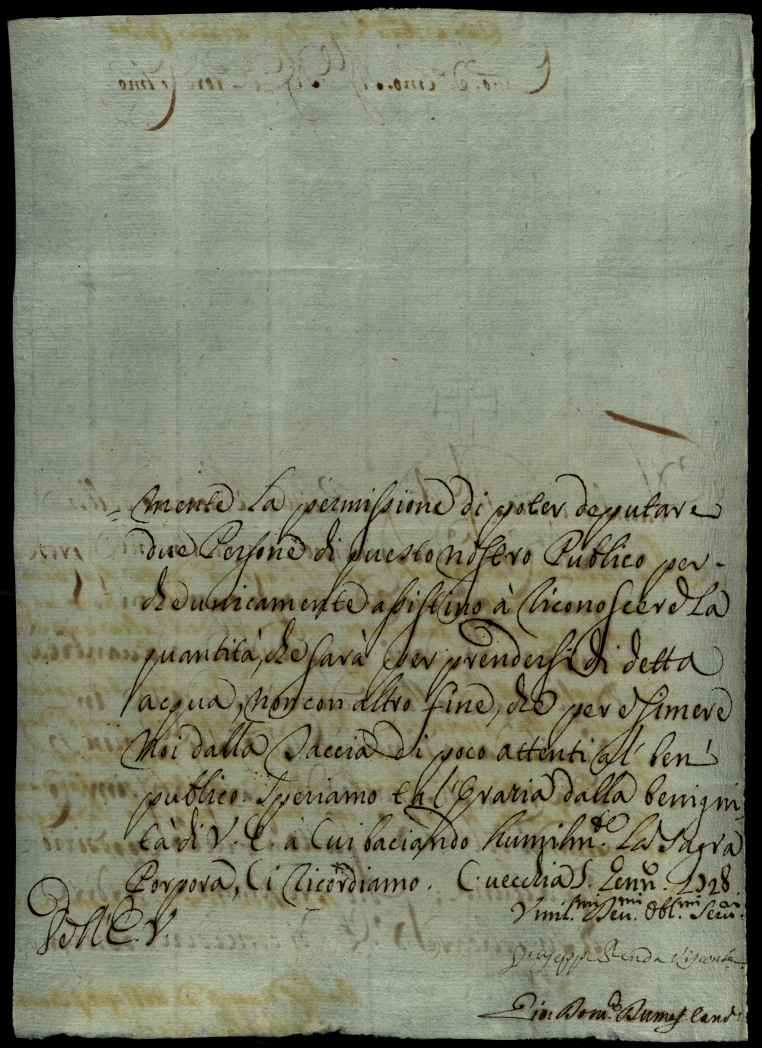 mente la permissione di poter deputare
due Persone di questo nostro Publico per-
che unicamente assistino à riconoscere la
quantità, che sarà per prendersi di detta
acqua, non con altro fine, che per esimere
noi dalla Taccia di poco attenti al ben'
publico. Speriamo tal Grazia dalla benigni
tà di V. E. à Cui baciando humilm.te la Sagra
Porpora, Ci ricordiamo. C. vecchia 1728.
Dell' E. V.
Umil.mi Dev.mi Obl.mi Ser.ri
Giuseppe
Gio: Dom.co